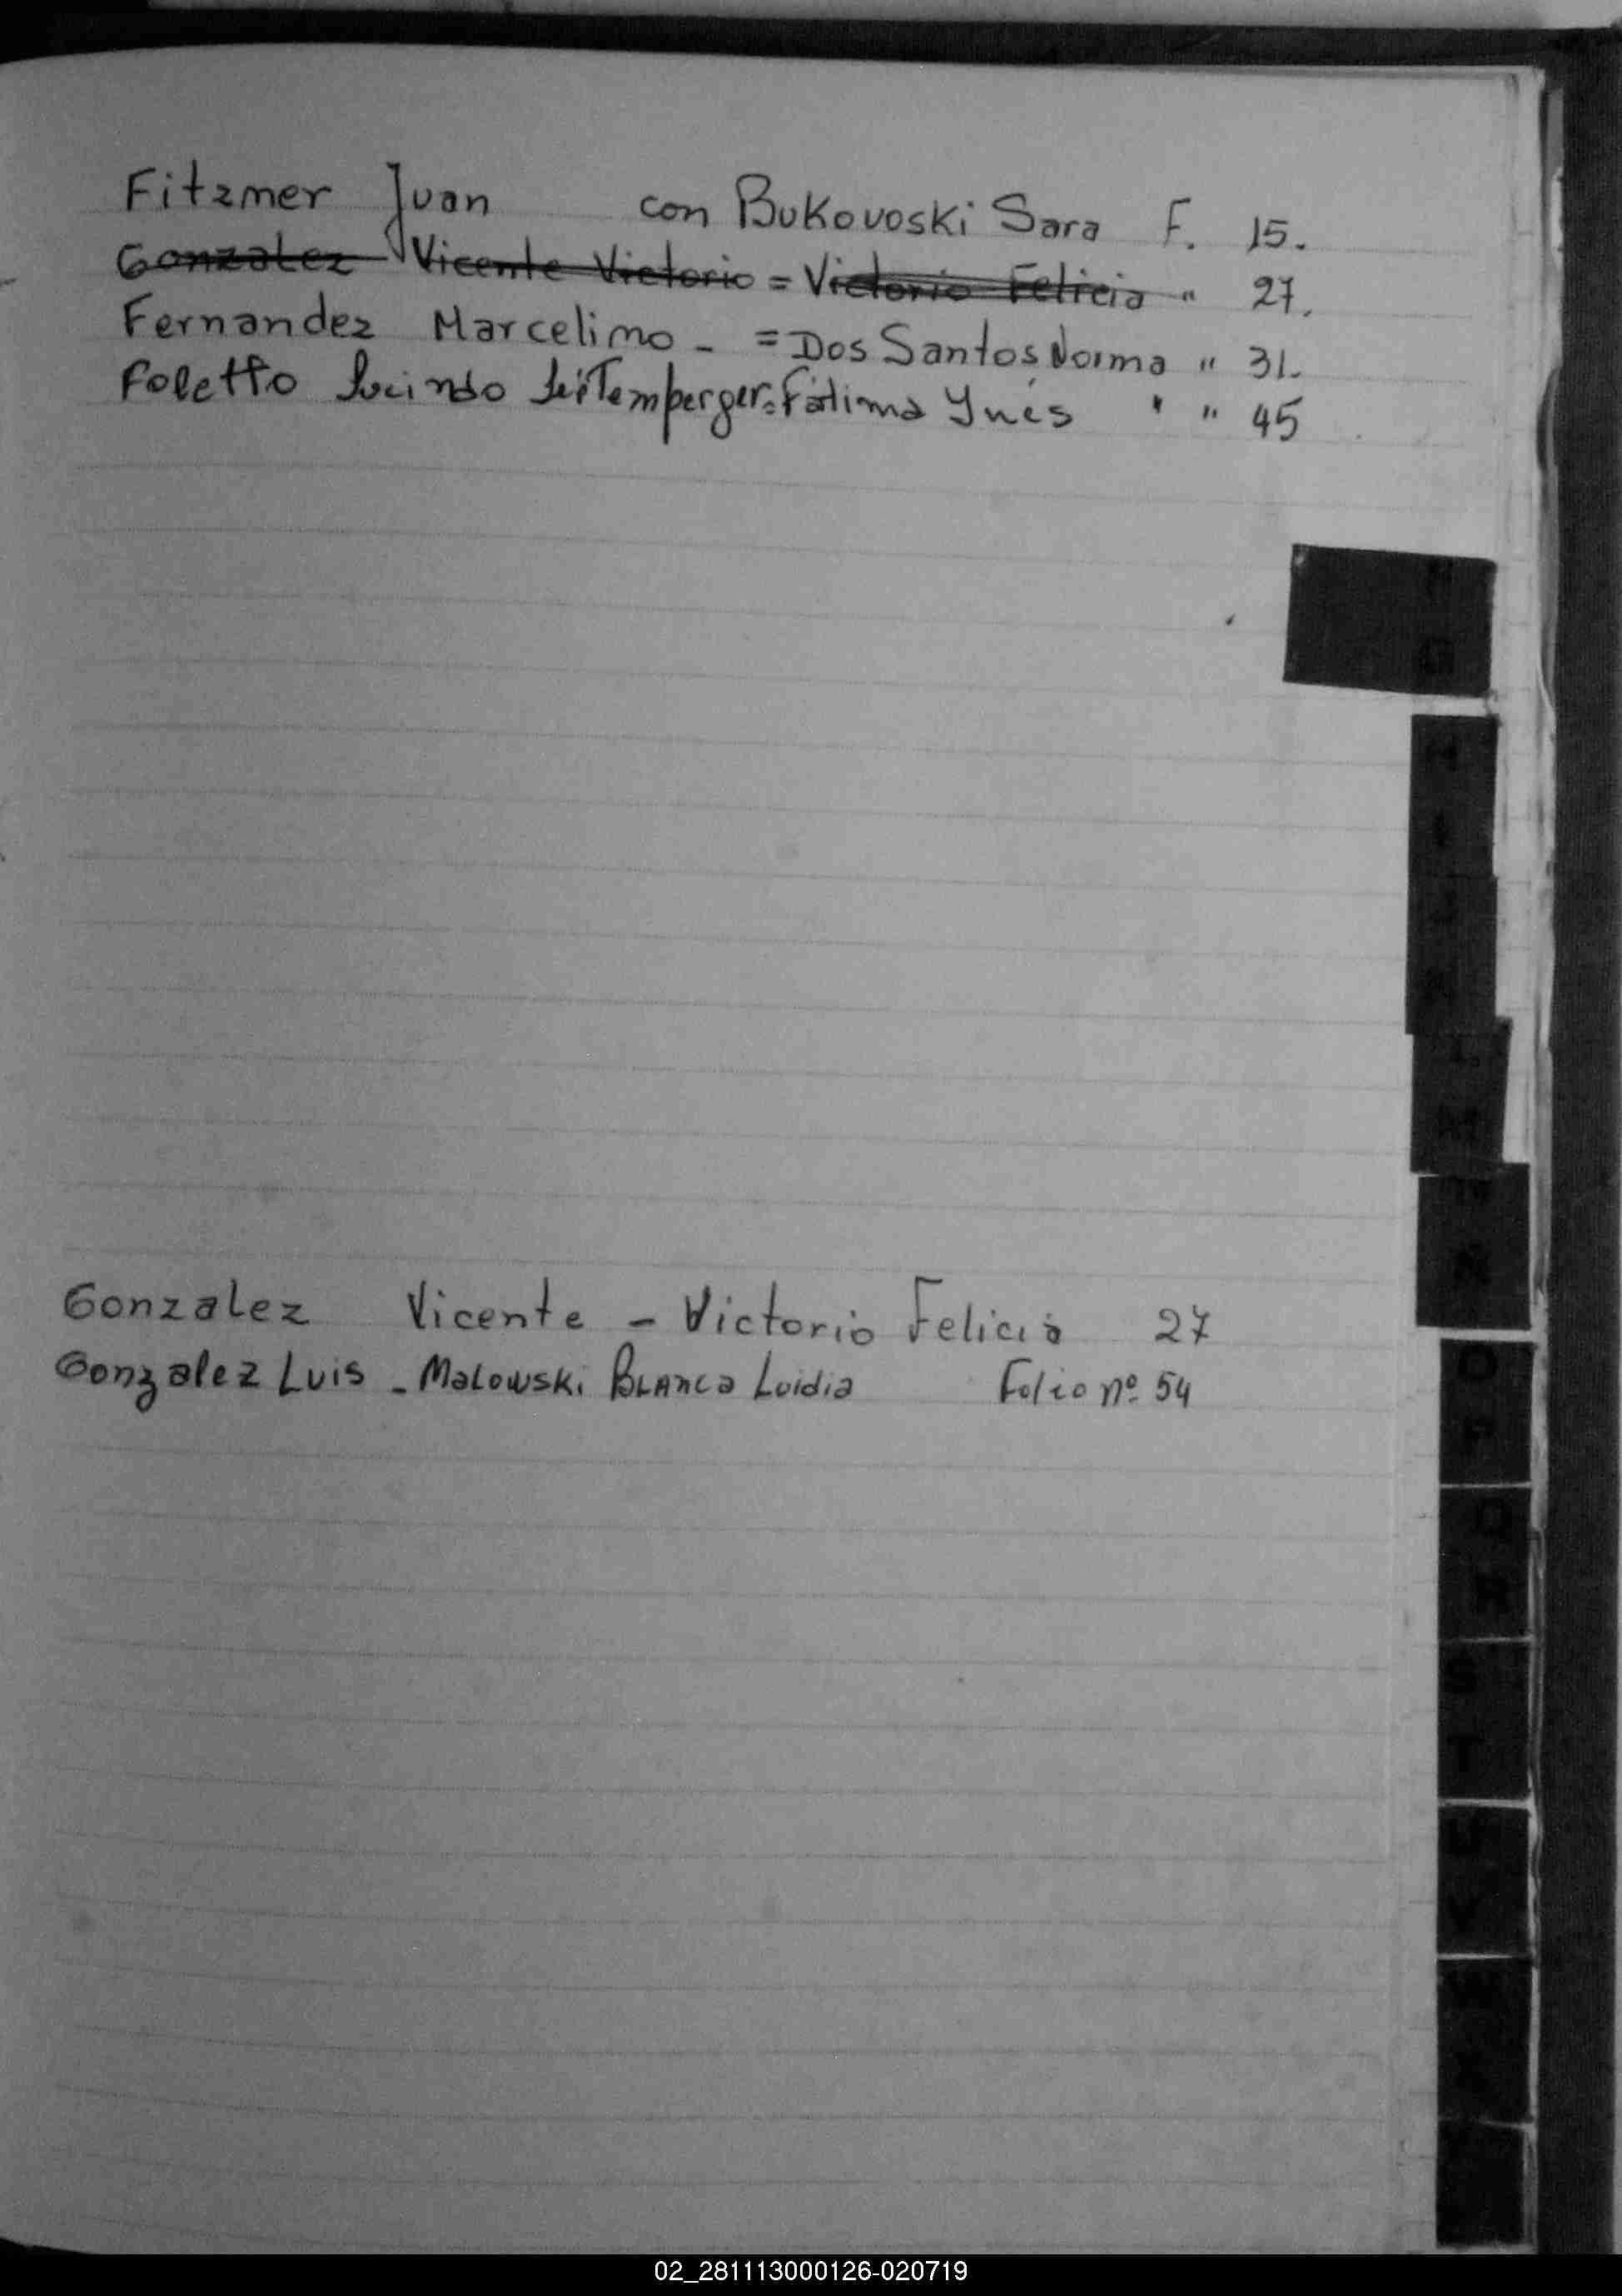 Fitzmer Juan con Bukovoski Sara F. 15.
Gonzalez Vicente Victorio = Victorio Felicia " 27.
Fernandez Marcelino - = Dos Santos Norma " 31.
Foletto Lucindo Fátima Ynés " " 45
F
G
H
I
J
K
L
M
N
Ñ
Gonzalez Vicente - Victorio Felicia 27
Gonzalez Luis - Malowski Blanca Loidia Folio nº 54
O
P
Q
R
S
T
U
V
02_281113000126-020719